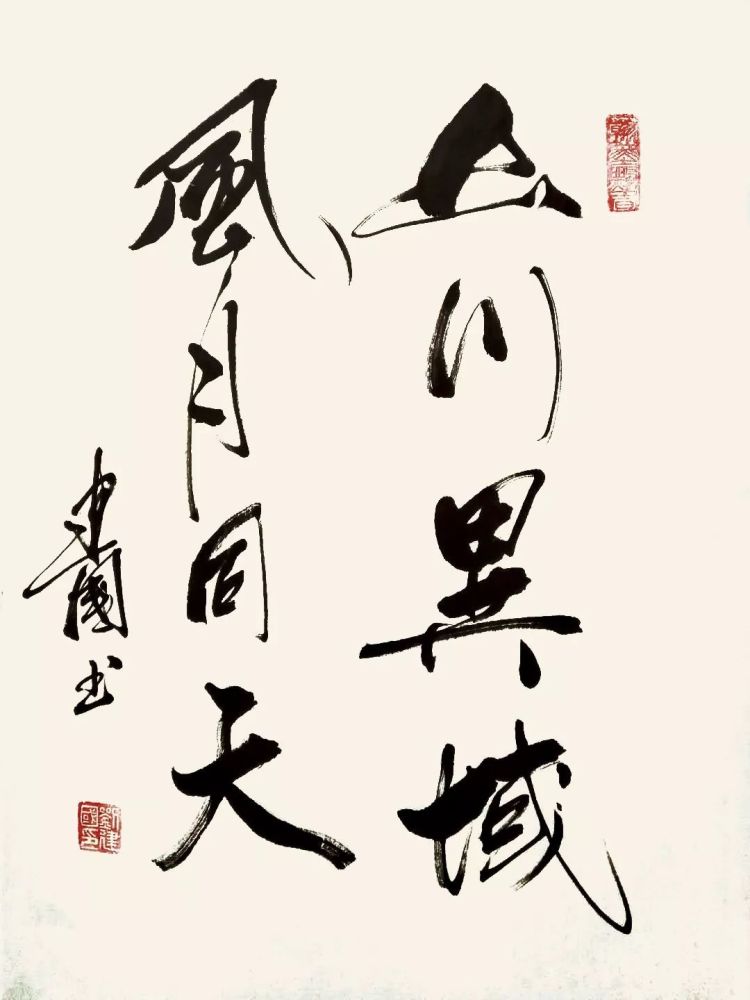 山川異域
風月同天
建國书
劉建國印